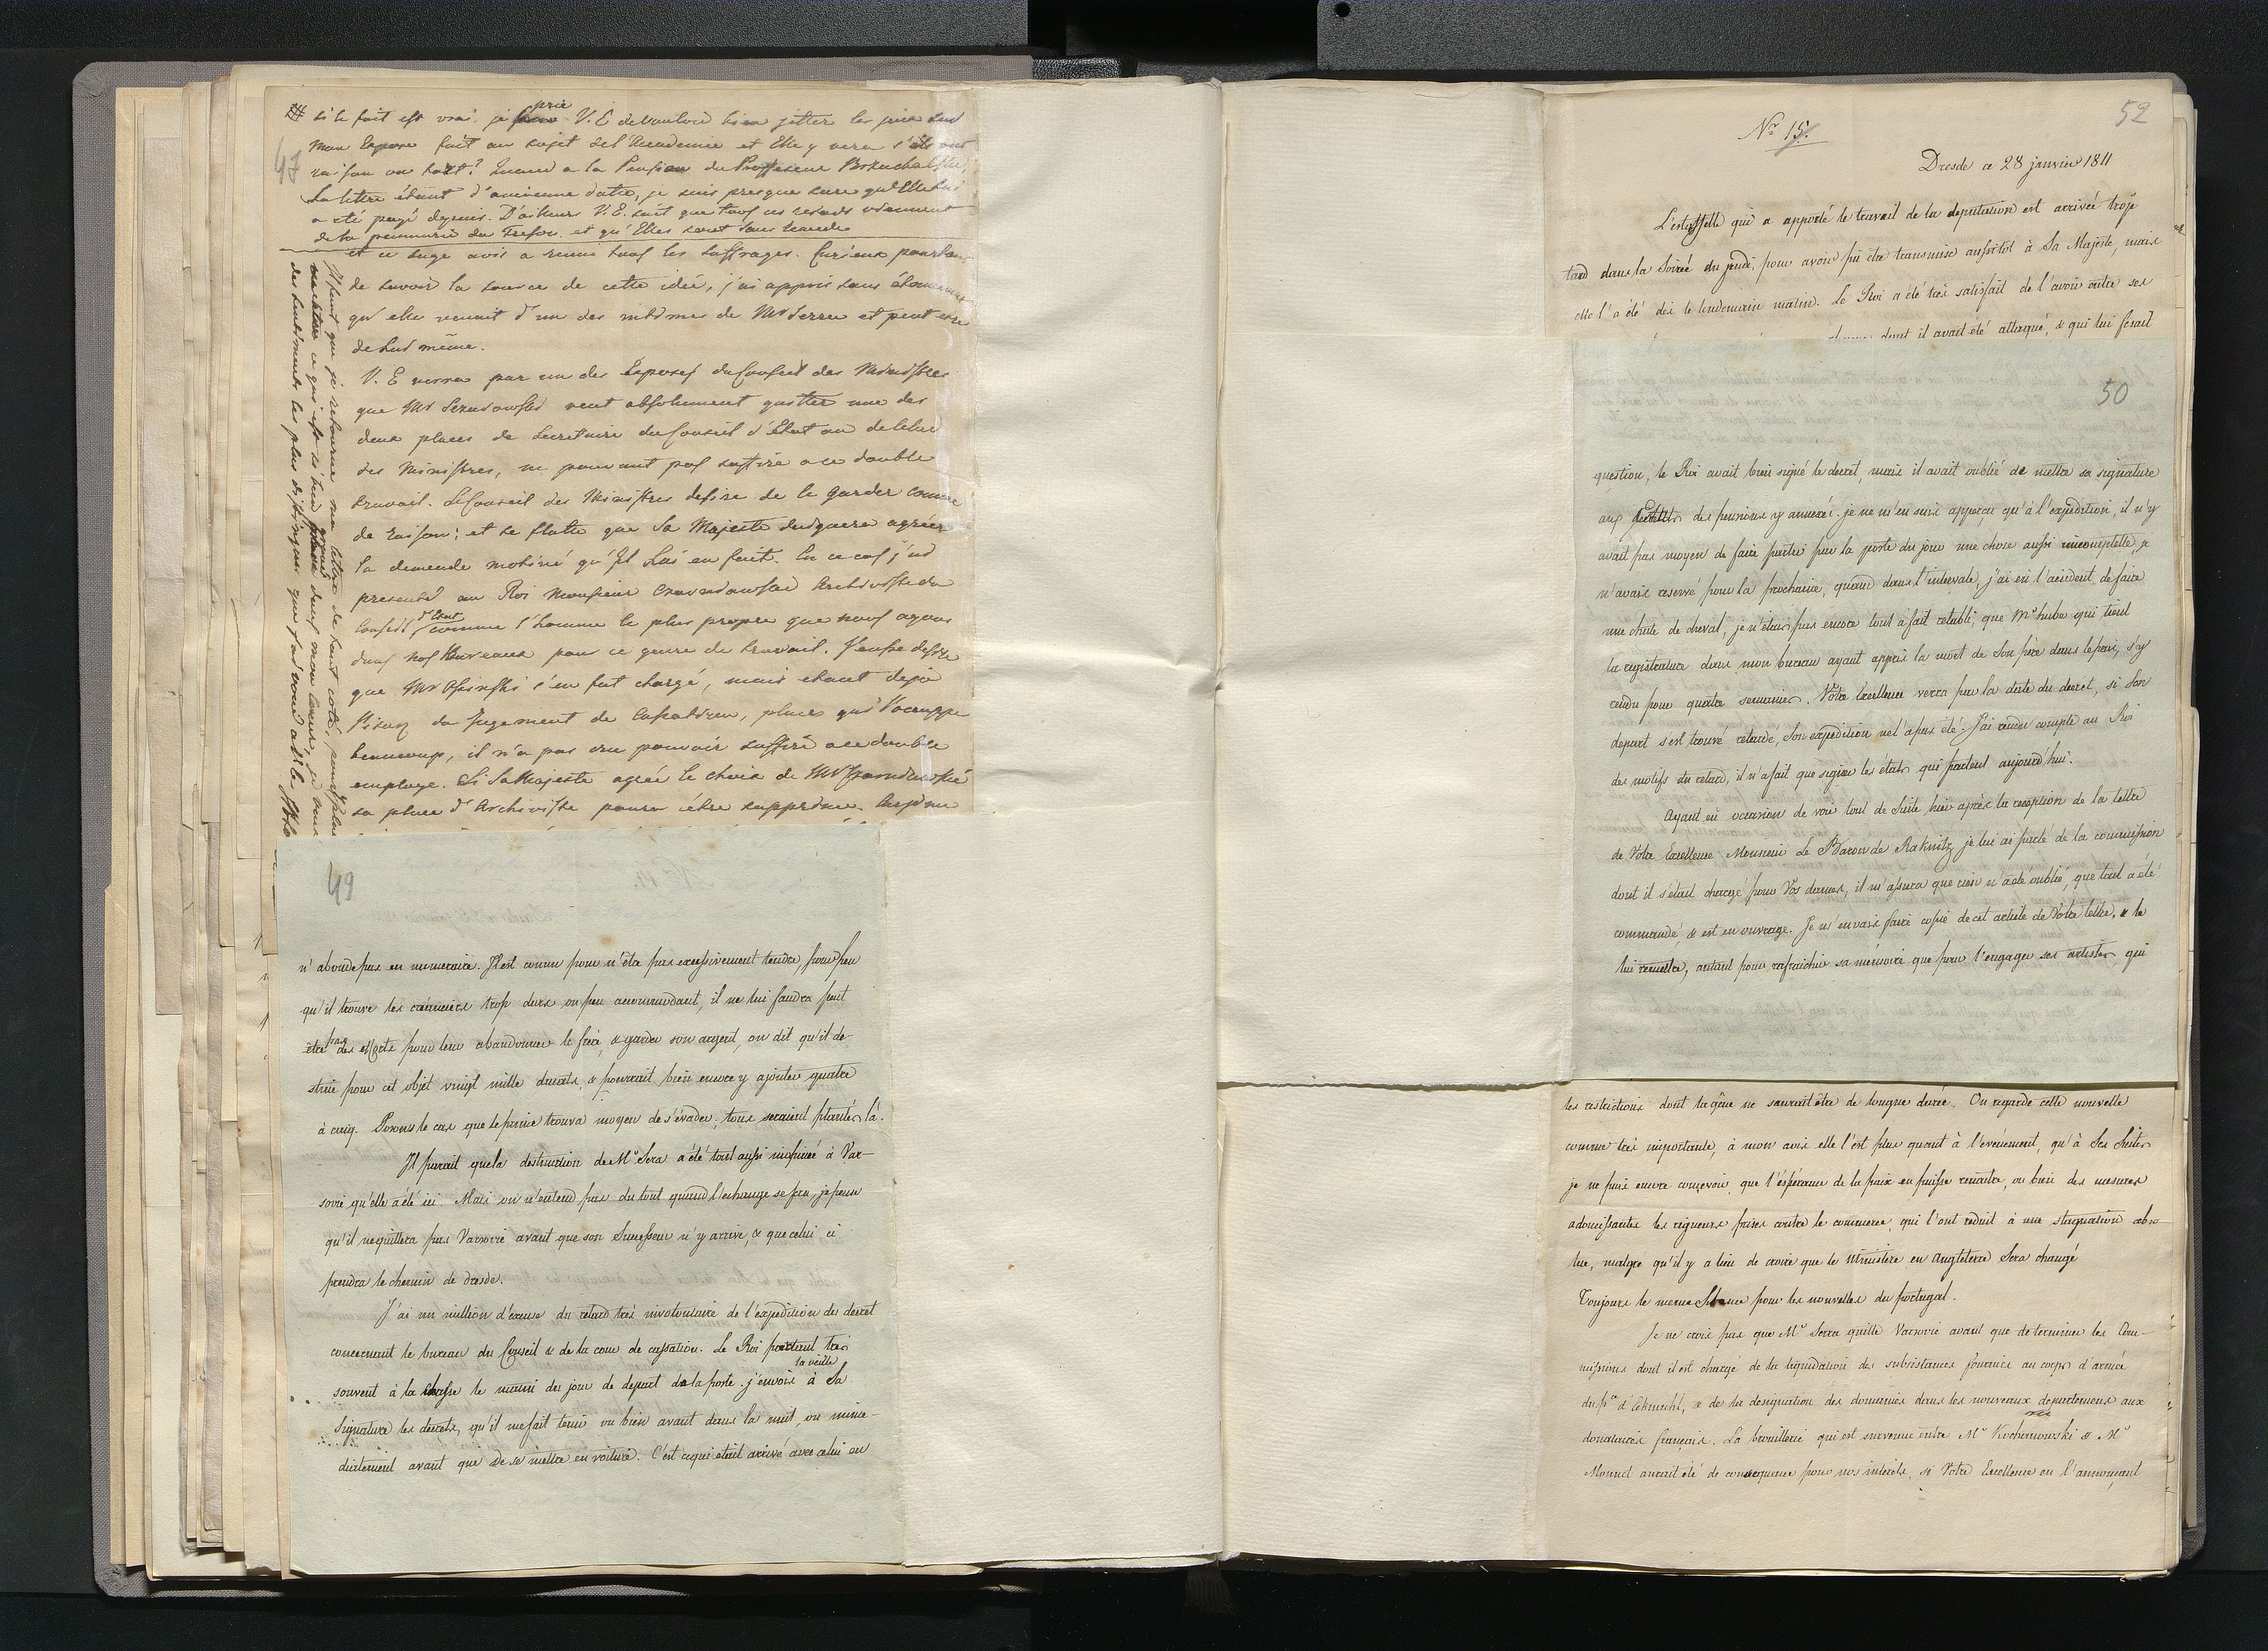 47
si le fait est vrai. je prie V. E. de vouloir bien jetter les yeux sur
mon Exposé fait au sujet de l'Academie et Elle y verra s'ils ont
raison ou tort? Quand a la Pension du Professeur
La lettre étant d'ancienne datte, je suis presque sure qu'Elle lui
a eté payé depuis. D'ailleurs V. E. sait que tous ces retards viennent
de la pennurie du Tresor et qu'Elles sont sans remede
et ce sage avis a reuni tous les suffrages. Curieux pourtant
de savoir la source de cette idée, j'ai appris sans étonnement
qu'elle venait d'un des intimes de Mr Serra et peut etre
de Lui même.
V. E verra par un des Exposés du Conseil des Ministres
que Mr veut absolument quitter une des
deux places de Secretaire du Conseil d'Etat ou de Celui
des Ministres, ne pouvant pas suffire a ce double
travail. Le Conseil des Ministres desire de le garder comme
de raison; et se flatte que Sa Majesté daignera agréer
la demende motivé qu'Il Lui en fait. En ce cas j'ai
presenté au Roi Monsieur Archiviste du
Conseil d'Etat comme l'homme le plus propre que nous ayons
dans nos Bureaux pour ce genre de travail. J'eusse desiré
que Mr Osinski s'en fut chargé, mais etant deja
du Jugement de Cassation, place qui l'occuppe
beaucoup, il n'a pas cru pouvoir suffire a ce double
employe. Si Sa Majesté agrée le choix de Mr
sa place d'Archiviste poura être supprimée.
Il faut que je retourne ma lettre de tout coté, pour
ce qui est si bien gravé dans mon coeur,
des sentiments les plus distingués que j'ai voué
49
n'abonde pas en numeraire. Il est connu pour n'être pas excessivement tendre, pour peu
qu'il trouve les créanciers trop durs ou peu accommodant, il ne lui faudra peut
être pas des efforts pour leur abandonner le frère, & garder son argent, on dit qu'il de-
stine pour cet objet vingt mille ducats, & pourrait bien encore y ajouter quatre
à cinq. Posons le cas que le prince trouva moyen de s'évader; tous seraient plantés là.
Il parait que la destination de Mr Sera a été tout aussi inopinée à Var-
sovie qu'elle a été ici. Mais on n'entend pas du tout quand l'echange se fera, je pense
qu'il ne quittera pas Varsovie avant que son Successeur n'y arrive, & que celui ci
prendra le chemin de dresde.
J'ai un million d'excuse du retard très involontaire de l'expedition du decret
concernant le bureau du Conseil & de la cour de cassation. Le Roi partant très
souvent à la chasse le matin du jour de depart de la poste. j'envois la veille à Sa
Signature les decrets, qu'il me fait tenir ou bien avant dans la nuit, ou imme-
diatement avant que de se mettre en voiture. C'est ce qui était arrivé avec celui en
52
Nr 15.
Dresde ce 28 janvier 1811
L'estaffette qui a apporté le travail de la deputation est arrivée trop
tard dans la Soirée du jeudi, pour avoir pû être transmise aussitôt à Sa Majesté, mais
elle l'a été dès le lendemain matin. Le Roi a été très satisfait de l'avoir outre ses
dont il avait été attaqué, & qui lui fesait
50
question, le Roi avait bien signé le decret, mais il avait oublié de mettre sa signature
aux des pensions y annexés. je ne m'en suis apperçu qu'à l'expedition, il n'y
avait pas moyen de faire partir par la poste du jour une chose aussi incomplette, je
m'avais reservé pour la prochaine, quand dans l'intervale, j'ai eû l'accident de faire
une chute de cheval, je n'étais pas encore tout à fait retabli, que Mr hube qui tient
la registrature dans mon bureau ayant appris la mort de son père dans le pais, s'y
rendu pour quatre semaines. Votre Excellence verra par la date du decret, si son
depart s'est trouvé retardé, son expedition ne l'a pas été. J'ai rendu compte au Roi
des motifs du retard, il n'a fait que signer les états qui partent aujourd'hui.
Ayant eû occasion de voir tout de suite hier après la reception de la lettre
de Votre Excellence Monsieur Le Baron de Raknitz je lui ai parlé de la commission
dont il s'était chargé pour Vos dames, il m'assura que rien n'a été oublié, que tout a été
commandé, & est en ouvrage. Je m'en vais faire copie de cet article de Votre lettre, & la
lui remettre, autant pour rafraichir sa mémoire que pour l'engager ses artistes, qui
les restrictions dont la gêne ne saurait être de longue durée. On regarde cette nouvelle
comme très importante, à mon avis elle l'est plus quant à l'evenement, qu'à Ses Suites
je ne puis encore conçevoir, que l'éspérance de la paix en puisse renaitre, ou bien des mesures
adoucissantes les rigueurs prises contre le commerce, qui l'ont reduit à une stagnation abso-
lue, malgré qu'il y a lieu de croire que le Ministère en Angleterre Sera changé
Toujours le meme Silence pour les nouvelles du portugal.
Je ne crois pas que Mr Serra quitte Varsovie avant que determiner les Com-
missions dont il est chargé de la liquidation des subsistances fournies au corps d'armée
du pce d'Eckmühl, & de la designation des domaines dans les nouveaux departemens aux
donataires français. La brouillerie qui est survenue entre Mr Kochanowski & Mr
Mounet aurait été de consequence pour nos intérêts, si Votre Excellence en l'annonçant